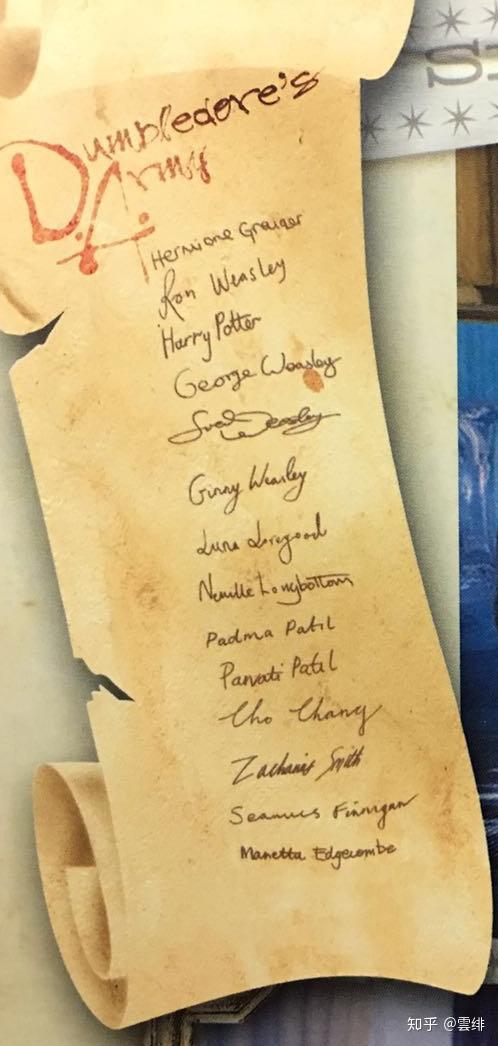 Dumbledore's
Army
Hermione Granger
Ron Weasley
Harry Potter
George Weasley
Fred Weasley
Ginny Weasley
Luna Lovegood
Neville Longbottom
Padma Patil
Parvati Patil
Cho Chang
Zacharias Smith
Seamus Finnigan
Marietta Edgecombe
知乎 @雲绯